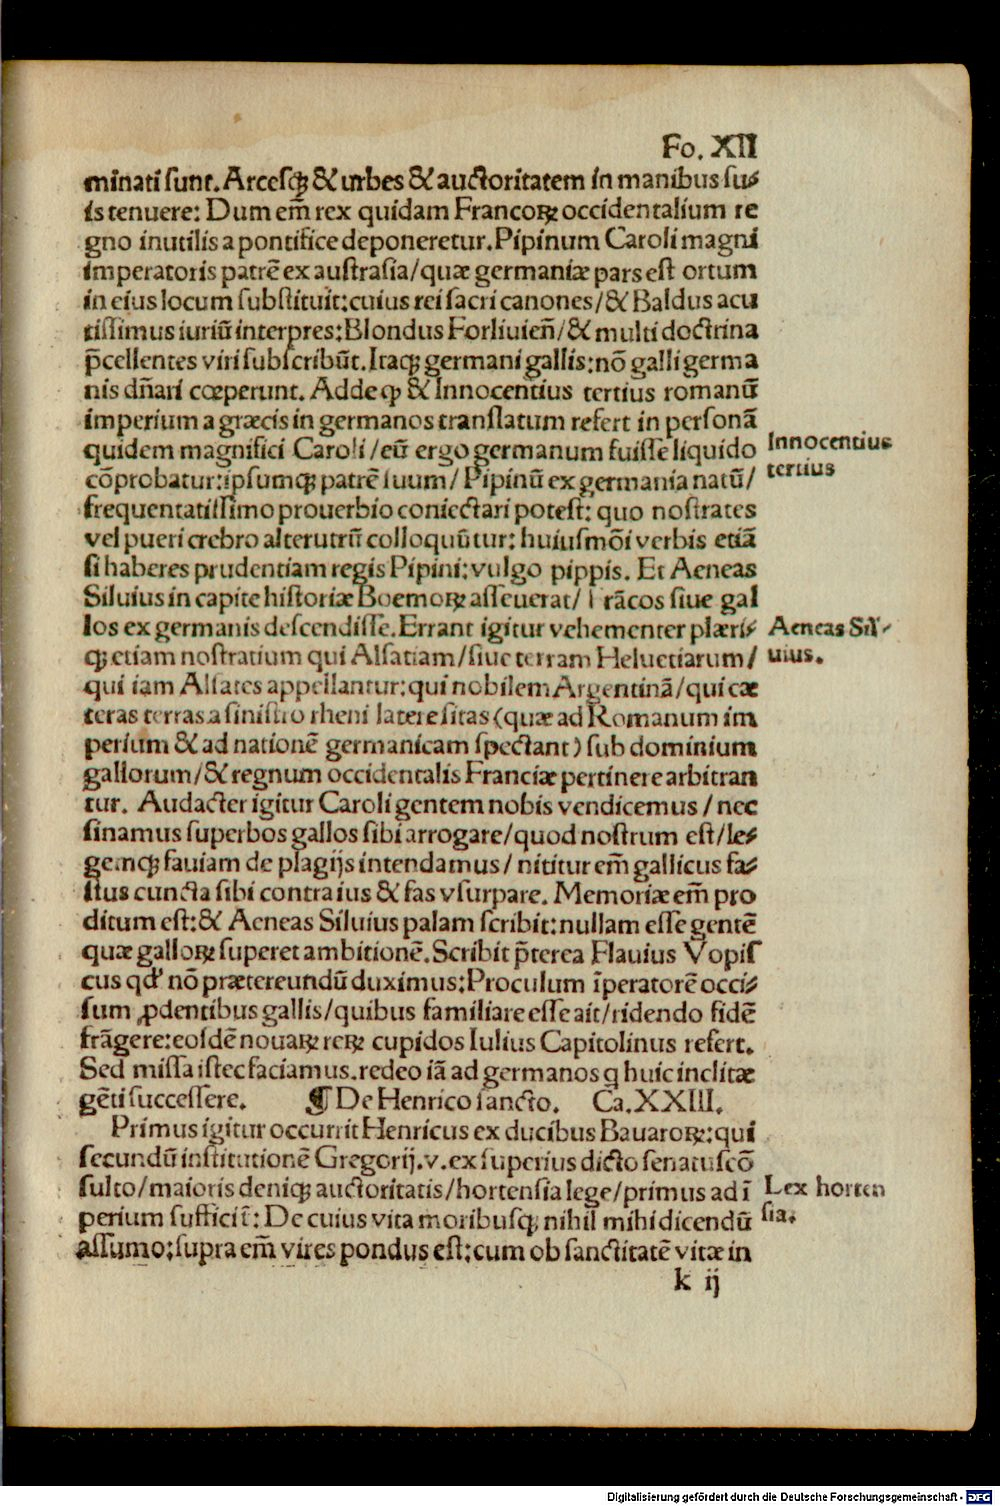 Fo. XII
minati sunt. Arcesqꝫ & urbes & auctoritatem in manibus su⸗
is tenuere: Dum em̃ rex quidam Francoꝝ occidentalium re
gno inutilis a pontifice deponeretur. Pipinum Caroli magni
imperatoris patrē ex austrasia/quæ germaniæ pars est ortum
in eius locum substituit: cuius rei sacri canones/& Baldus acu
tissimus iuriū interpres: Blondus Forliuieñ/& multi doctrina
p̄cellentes viri subscribūt. Itaqꝫ germani gallis: nō galli germa
nis dñari cœperunt. Adde ꝙ & Innocentius tertius romanū
imperium a græcis in germanos translatum refert in personā
quidem magnifici Caroli/eū ergo germanum fuisse liquido
cōprobatur: ipsumqꝫ patrē suum/Pipinū ex germania natū/
frequentatissimo prouerbio coniectari potest: quo nostrates
vel pueri crebro alterutrū colloquūtur: huiusmōi verbis etiā
si haberes prudentiam regis Pipini: vulgo pippis. Et Aeneas
Siluius in capite historiæ Boemoꝝ asseuerat/Frācos siue gal
los ex germanis descendisse. Errant igitur vehementer plæri⸗
qꝫ etiam nostratium qui Alsatiam/siue terram Heluetiarum/
qui iam Alsates appellantur: qui nobilem Argentinā/qui cæ
teras terras a sinistro rheni latere sitas (quæ ad Romanum im
perium & ad nationē germanicam spectant) sub dominium
gallorum/& regnum occidentalis Franciæ pertinere arbitran
tur. Audacter igitur Caroli gentem nobis vendicemus/nec
sinamus superbos gallos sibi arrogare/quod nostrum est/le⸗
gemqꝫ fauiam de plagijs intendamus/nititur em̃ gallicus fa⸗
stus cuncta sibi contra ius & fas vsurpare. Memoriæ em̃ pro
ditum est: & Aeneas Siluius palam scribit: nullam esse gentē
quæ galloꝝ superet ambitionē. Scribit p̄terea Flauius Vopis
cus qd' nō prætereundū duximus: Proculum īperatorē occi⸗
sum ꝓdentibus gallis/quibus familiare esse ait/ridendo fidē
frāgere: eosdē nouaꝝ reꝝ cupidos Iulius Capitolinus refert.
Sed missa istec faciamus. redeo iā ad germanos q̄ huic inclitæ
gēti successere. ¶ De Henrico sancto. Ca. XXIII.
Primus igitur occurrit Henricus ex ducibus Bauaroꝝ: qui
secundū institutionē Gregorij. v. ex superius dicto senatuscō
sulto/maioris deniqꝫ auctoritatis/hortensia lege/primus ad ī
perium sufficiī: De cuius vita moribusqꝫ nihil mihi dicendū
assumo: supra em̃ vires pondus est: cum ob sanctitatē vitæ in
k ij
Innocentius
tertius
Aeneas Sil⸗
uius.
Lex horten
sia.
Digitalisierung gefördert durch die Deutsche Forschungsgemeinschaft - DFG